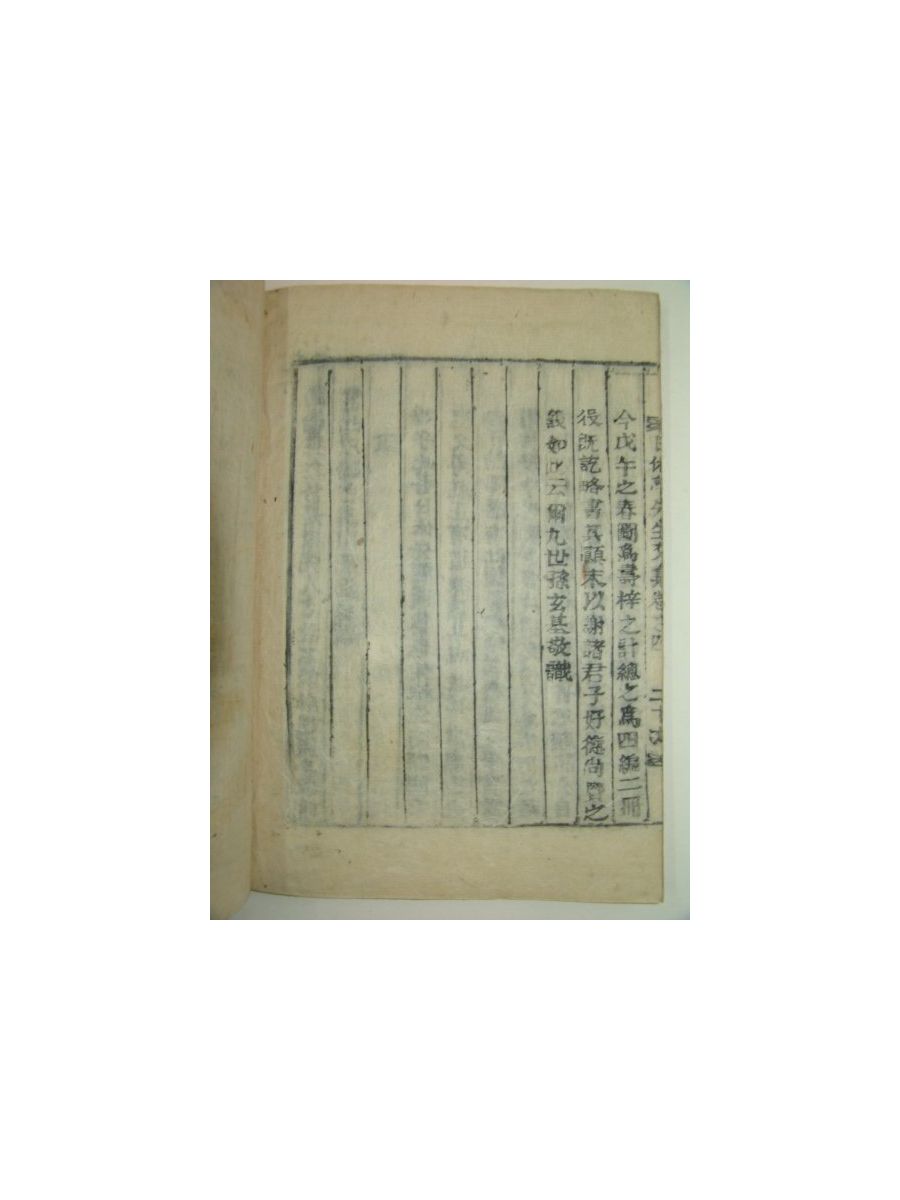 日休堂先生文集卷之四
今戊午之春圖爲壽梓之計總之爲四編二冊
役旣訖略書其顚末以謝諸君子好德尚賢之
義如此云爾九世孫玄基敬識